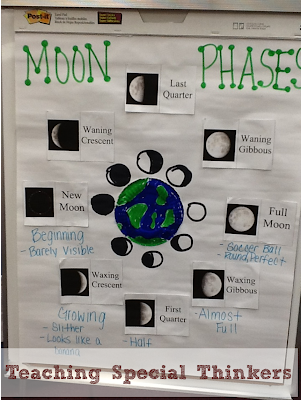 Post-it
MOON PHASES
Last
Quarter
Waning
Crescent
Waning
Gibbous
New
Moon
Full
Moon
Beginning
- Barely Visible
- Soccer Ball
- Round, Perfect
Waxing
Crescent
First
Quarter
Waxing
Gibbous
Growing
- Slither
- Looks like a
- Half
- Almost
Full
Teaching Special Thinkers